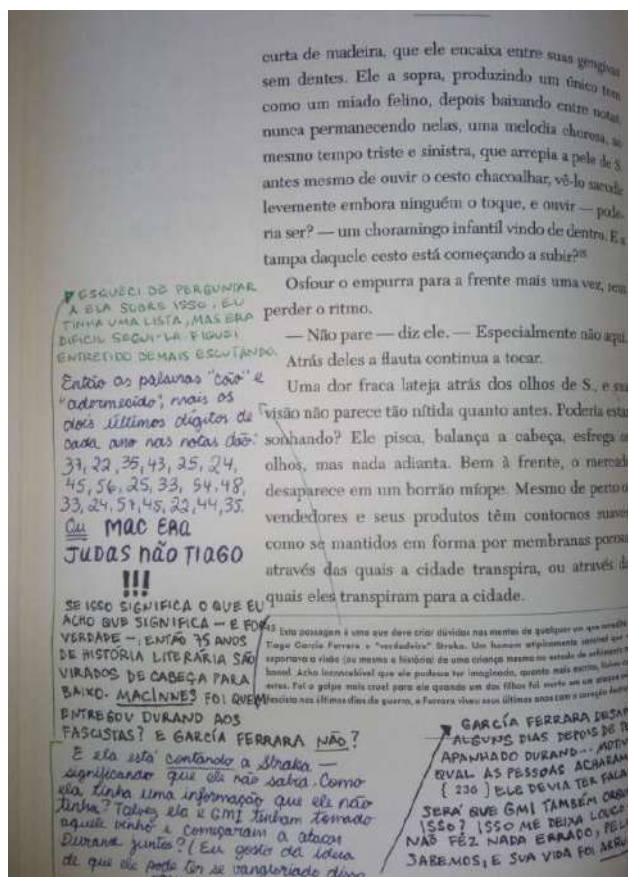 curta de madeira, que ele encaixa entre suas gengivas
sem dentes. Ele a sopra, produzindo um único tom
como um miado felino, depois baixando entre notas,
nunca permanecendo nelas, uma melodia chorosa, ao
mesmo tempo triste e sinistra, que arrepia a pele de S.
antes mesmo de ouvir o cesto chacoalhar, vê-lo sacudir
levemente embora ninguém o toque, e ouvir — pode-
ria ser? — um choramingo infantil vindo de dentro. E a
tampa daquele cesto está começando a subir?¹⁵
Osfour o empurra para a frente mais uma vez, sem
perder o ritmo.
— Não pare — diz ele. — Especialmente não aqui.
Atrás deles a flauta continua a tocar.
Uma dor fraca lateja atrás dos olhos de S., e sua
visão não parece tão nítida quanto antes. Poderia estar
sonhando? Ele pisca, balança a cabeça, esfrega os
olhos, mas nada adianta. Bem à frente, o mercado
desaparece em um borrão míope. Mesmo de perto os
vendedores e seus produtos têm contornos suaves
como se mantidos em forma por membranas porosas
através das quais a cidade transpira, ou através da
quais eles transpiram para a cidade.
15 Esta passagem é uma que deve criar dúvidas nas mentes de qualquer um que
Tiago García Ferrara e "verdadeiro" Straka. Um homem atipicamente sensível que
a visão (ou mesmo a história) de uma criança mesmo no estado de
banal. Acho inconcebível que ele pudesse ter imaginado, quanto mais escrito,
Foi o golpe mais cruel para ele quando um dos filhos foi morto em um ataque
fascista nos últimos dias de guerra, e Ferrara viveu seus últimos anos com o coração
ESQUECI DE PERGUNTAR
A ELA SOBRE ISSO, EU
TINHA UMA LISTA, MAS ERA
DIFÍCIL SEGUI-LA FIQUEI
ENTRETIDO DEMAIS ESCUTANDO.
Então as palavras "cão" e
"adormecido", mais os
dois últimos dígitos de
cada ano nas notas dão:
37, 22, 35, 43, 25, 24,
45, 56, 25, 33, 54, 48,
33, 24, 57, 45, 22, 44, 35.
Ou MAC ERA
JUDAS NÃO TIAGO
!!!
SE ISSO SIGNIFICA O QUE EU
ACHO QUE SIGNIFICA — E FOR
VERDADE —, ENTÃO 75 ANOS
DE HISTÓRIA LITERÁRIA SÃO
VIRADOS DE CABEÇA PARA
BAIXO. MACINNES FOI QUEM
ENTREGOU DURAND AOS
FASCISTAS? E GARCÍA FERRARA NÃO?
E ela está contando a Straka —
significando que ele não sabia. Como
ela tinha uma informação que ele não
tinha? Talvez ela e GMI tenham tomado
aquele vinho e começaram a atacar
Durand juntos? (Eu gosto da ideia
de que ele pode ter se vangloriado disso
GARCÍA FERRARA
ALGUNS DIAS DEPOIS DE
APANHADO DURAND...
QUAL AS PESSOAS ACHARAM
[236] ELE DEVIA TER
SERÁ QUE GMI TAMBÉM
ISSO? ISSO ME DEIXA LOUCO
NÃO FEZ NADA ERRADO,
SABEMOS, E SUA VIDA FOI